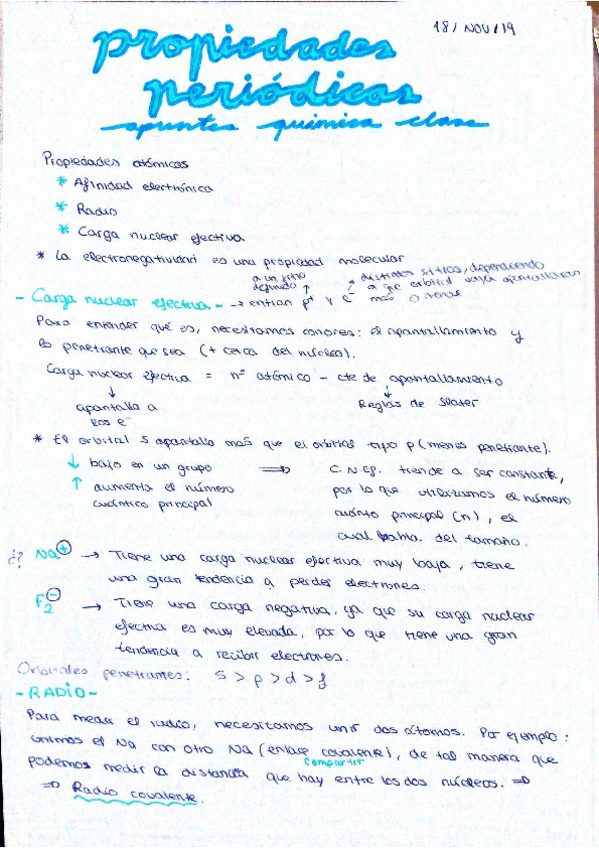 18/NOV/19
propiedades
periódicas
apuntes química clase
Propiedades atómicas
* Afinidad electrónica
* Radio
* Carga nuclear efectiva.
* La electronegatividad es una propiedad molecular
a un sitio definido ↑
↗ distintos sitios, dependiendo a que orbital vaya apantallaran
- Carga nuclear efectiva - → entran p+ y e- más o menos
Para entender qué es, necesitamos conocer: el apantallamiento y
lo penetrante que sea (+ cerca del núcleo).
Carga nuclear efectiva = nº atómico - cte de apantallamiento
↓ ↓
apantalla a Reglas de Slater
los e-
* El orbital s apantalla más que el orbital tipo p (menos penetrante).
↓ bajo en un grupo ⟹ C.N.Ef. tiende a ser constante,
↑ aumenta el número por lo que utilizamos el número
cuántico principal cuánto principal (n), el
cual habla del tamaño.
¿? Na+ → Tiene una carga nuclear efectiva muy baja, tiene
una gran tendencia a perder electrones.
F2- → Tiene una carga negativa, ya que su carga nuclear
efectiva es muy elevada, por lo que tiene una gran
tendencia a recibir electrones.
Orbitales penetrantes: s > p > d > f
- RADIO -
Para medir el radio, necesitamos unir dos átomos. Por ejemplo:
unimos el Na con otro Na (enlace covalente), de tal manera que
compartir
podemos medir la distancia que hay entre los dos núcleos. ⇒
⇒ Radio covalente.